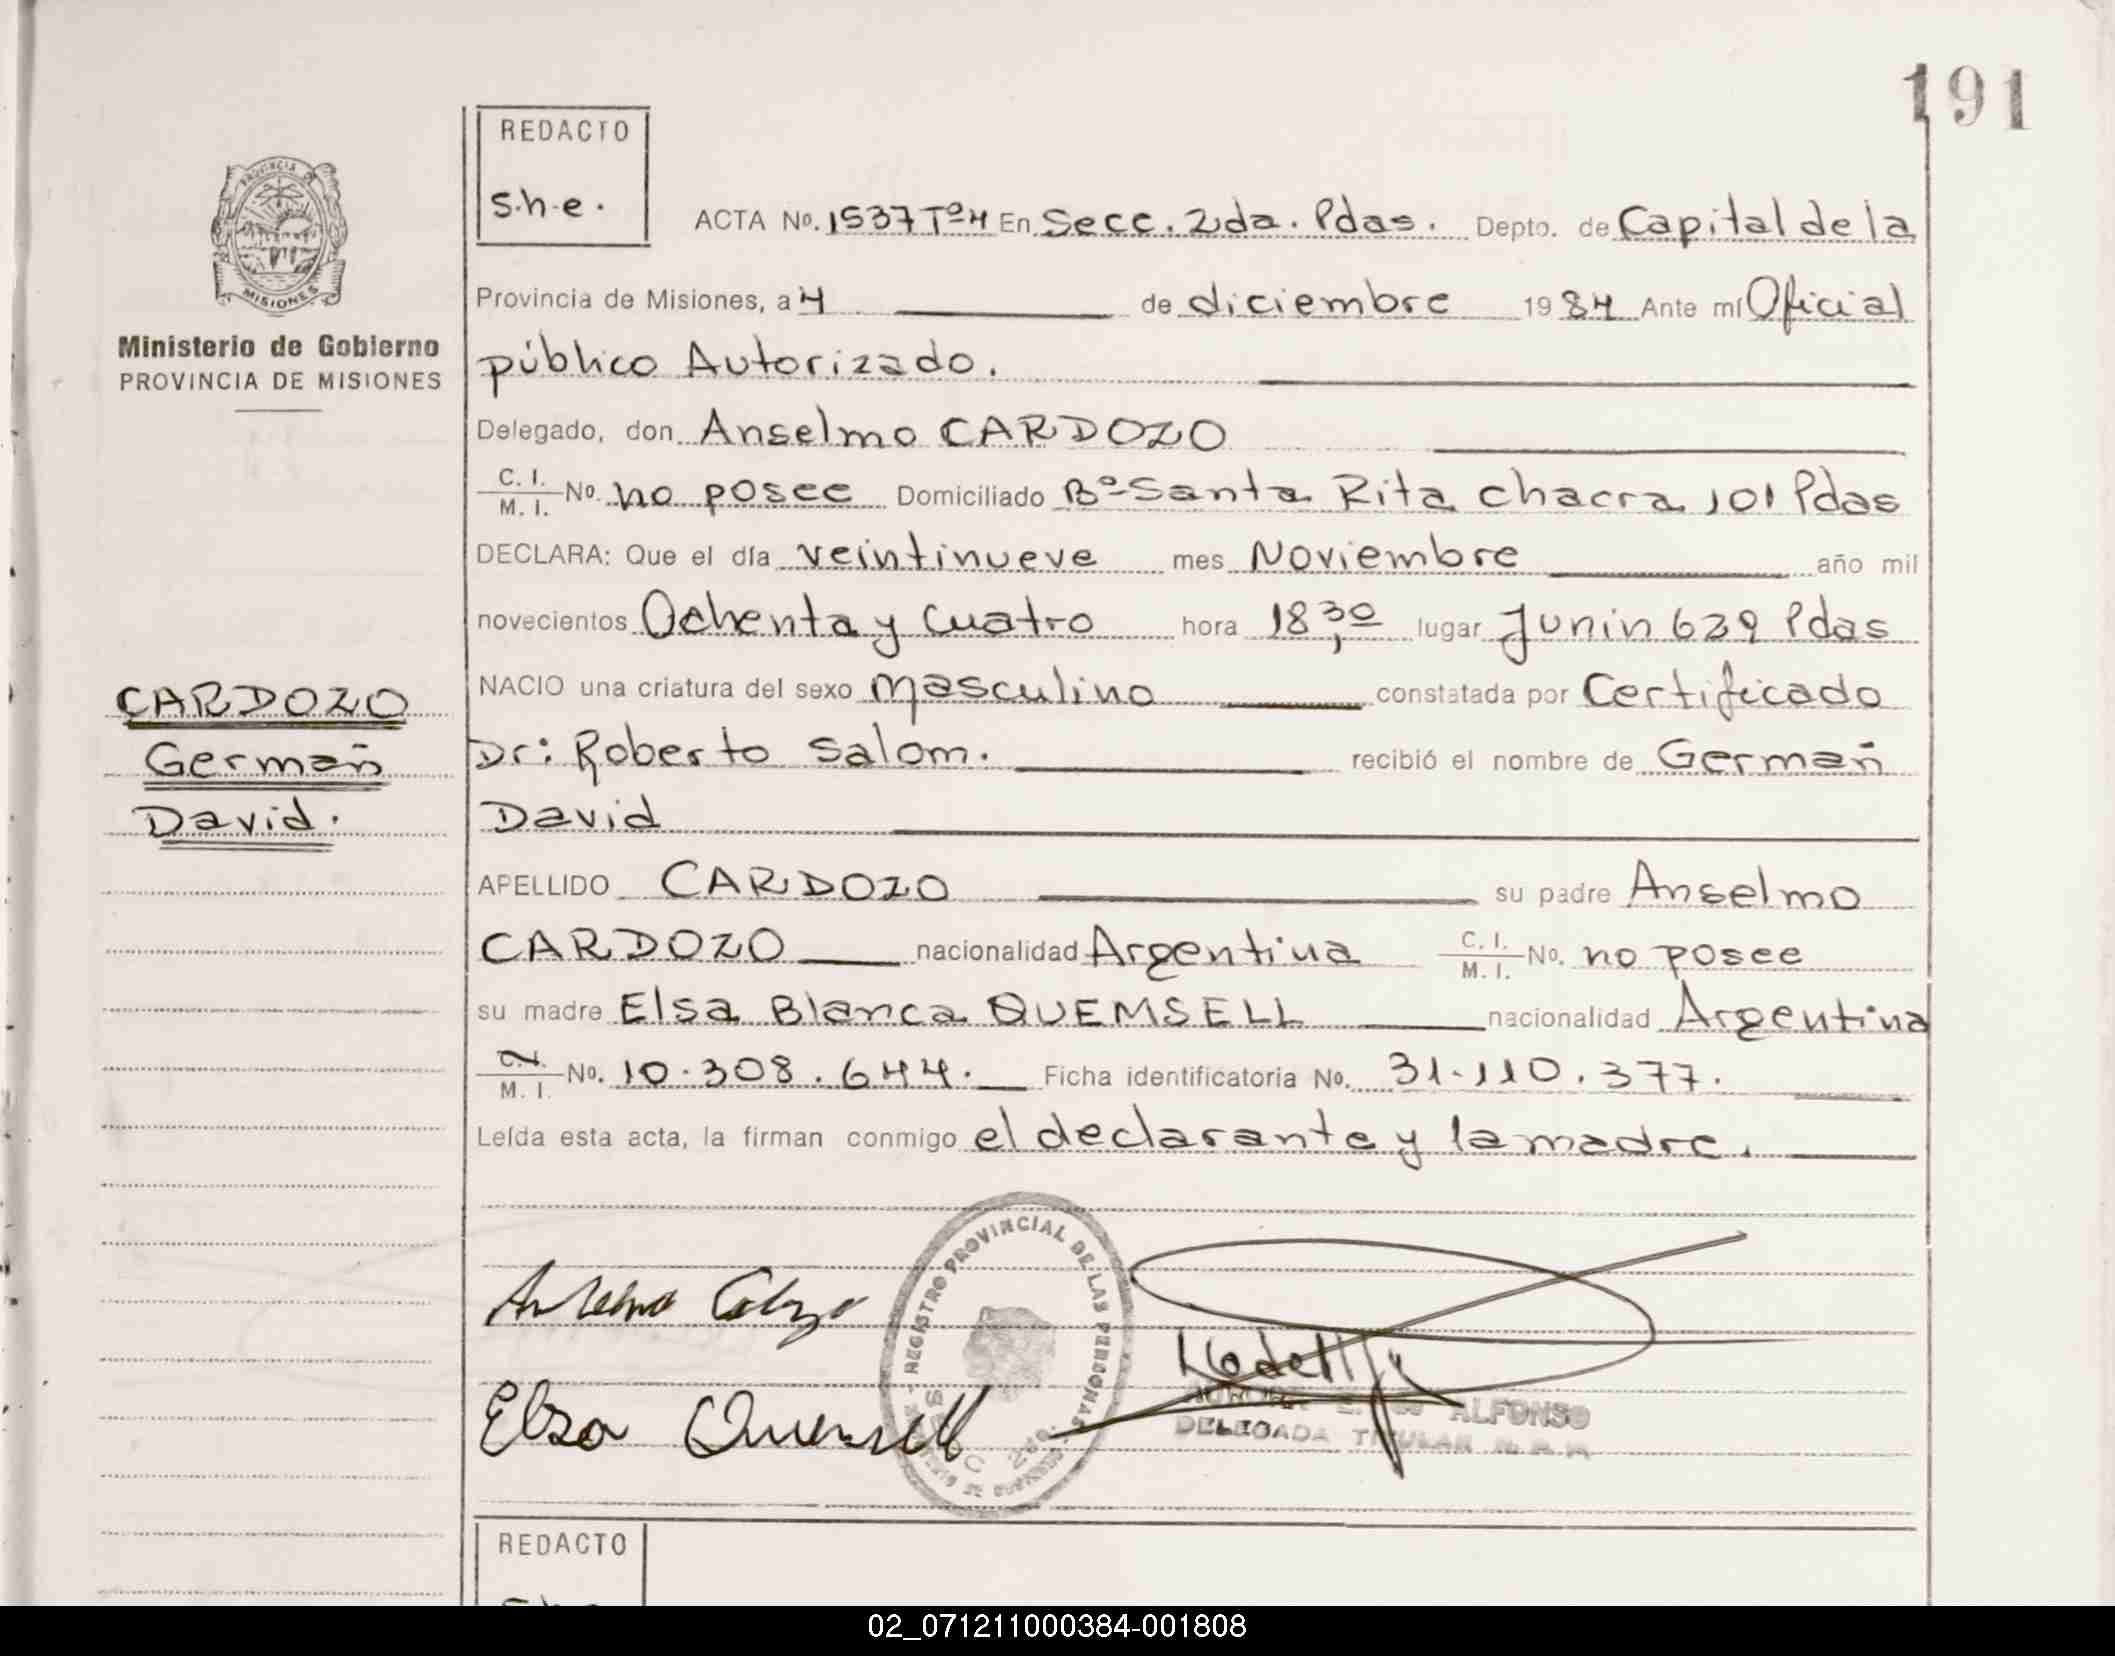 191
REDACTO
s.h.e.
PROVINCIA DE
MISIONES
Ministerio de Gobierno
PROVINCIA DE MISIONES
ACTA No. 1537 Tº4 En Secc. 2da. Pdas. Depto. de Capital de la
Provincia de Misiones, a 4 de diciembre 1984 Ante mí Oficial
público Autorizado.
Delegado, don Anselmo CARDOZO
C. I. M. I. No. no posee Domiciliado Bº Santa Rita chacra 101 Pdas
DECLARA: Que el día veintinueve mes Noviembre año mil
novecientos Ochenta y Cuatro hora 18,30 lugar Junin 629 Pdas
NACIO una criatura del sexo masculino constatada por Certificado
Dr: Roberto Salom. recibió el nombre de Germañ
David
CARDOZO
Germañ
David.
APELLIDO CARDOZO su padre Anselmo
CARDOZO nacionalidad Argentina C. I. M. I. No. no posee
su madre Elsa Blanca QUEMSELL nacionalidad Argentina
M. I. No. 10.308.644. Ficha identificatoria No. 31.110.377.
Leída esta acta, la firman conmigo el declarante y la madre.
REGISTRO PROVINCIAL DE LAS PERSONAS
Elsa Quemsell
ALFONSO
DELEGADA TITULAR
REDACTO
02_071211000384-001808